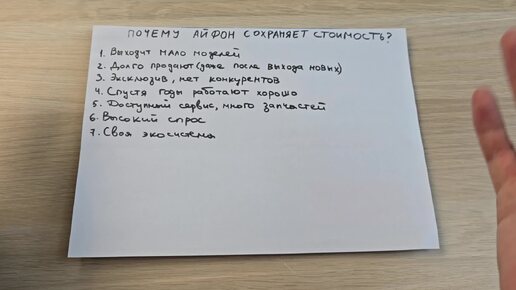 ПОЧЕМУ АЙФОН СОХРАНЯЕТ СТОИМОСТЬ?
1. Выходит мало моделей
2. Долго продают (даже после выхода новых)
3. Эксклюзив, нет конкурентов
4. Спустя годы работают хорошо
5. Доступный сервис, много запчастей
6. Высокий спрос
7. Своя экосистема